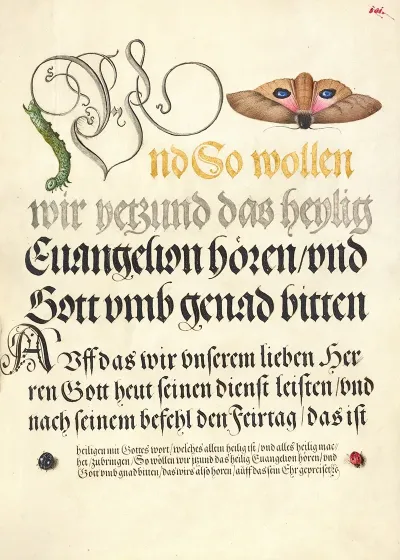 VndSo wollen
wir yetzund das heylig
Euangelion hören/vnd
Gott vmb genad bitten
AVff das wir vnserem lieben Her
ren Gott heut seinen dienst leisten/vnd
nach seinem befehl den Feirtag/das ist
heiligen mit Gottes wort/welches allein heilig ist/vnd alles heilig mac-
het/zubringen/So wollen wir jtzund das heilig Euangelion hören/vnd
Gott vmb gnad bitten/das wirs also hören/auff das sein Ehr gepreiset